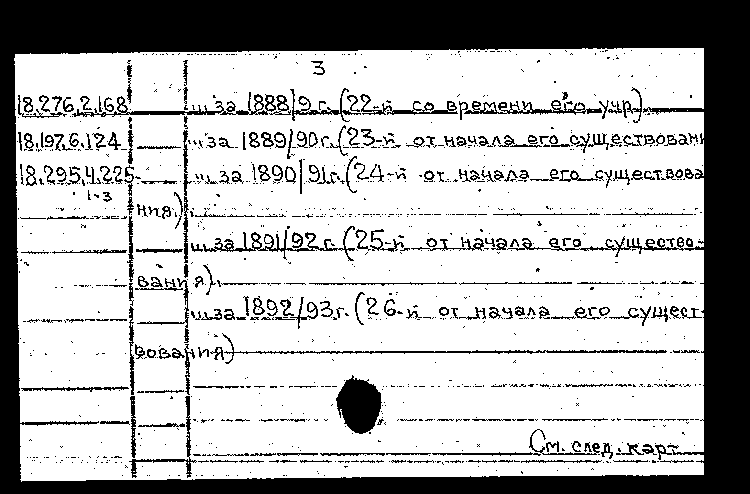 3
18.276.2.168 ... за 1888/9 г. (22-й со времени его учр).
18.197.6.124 ... за 1889/90 г. (23-й от начала его существовани
18.295.4.225 ... за 1890/91 г. (24-й от начала его существова
1-3
ния.)
... за 1891/92 г. (25-й от начала его существо-
вания).
... за 1892/93 г. (26-й от начала его сущест-
вования)
См. след. карт